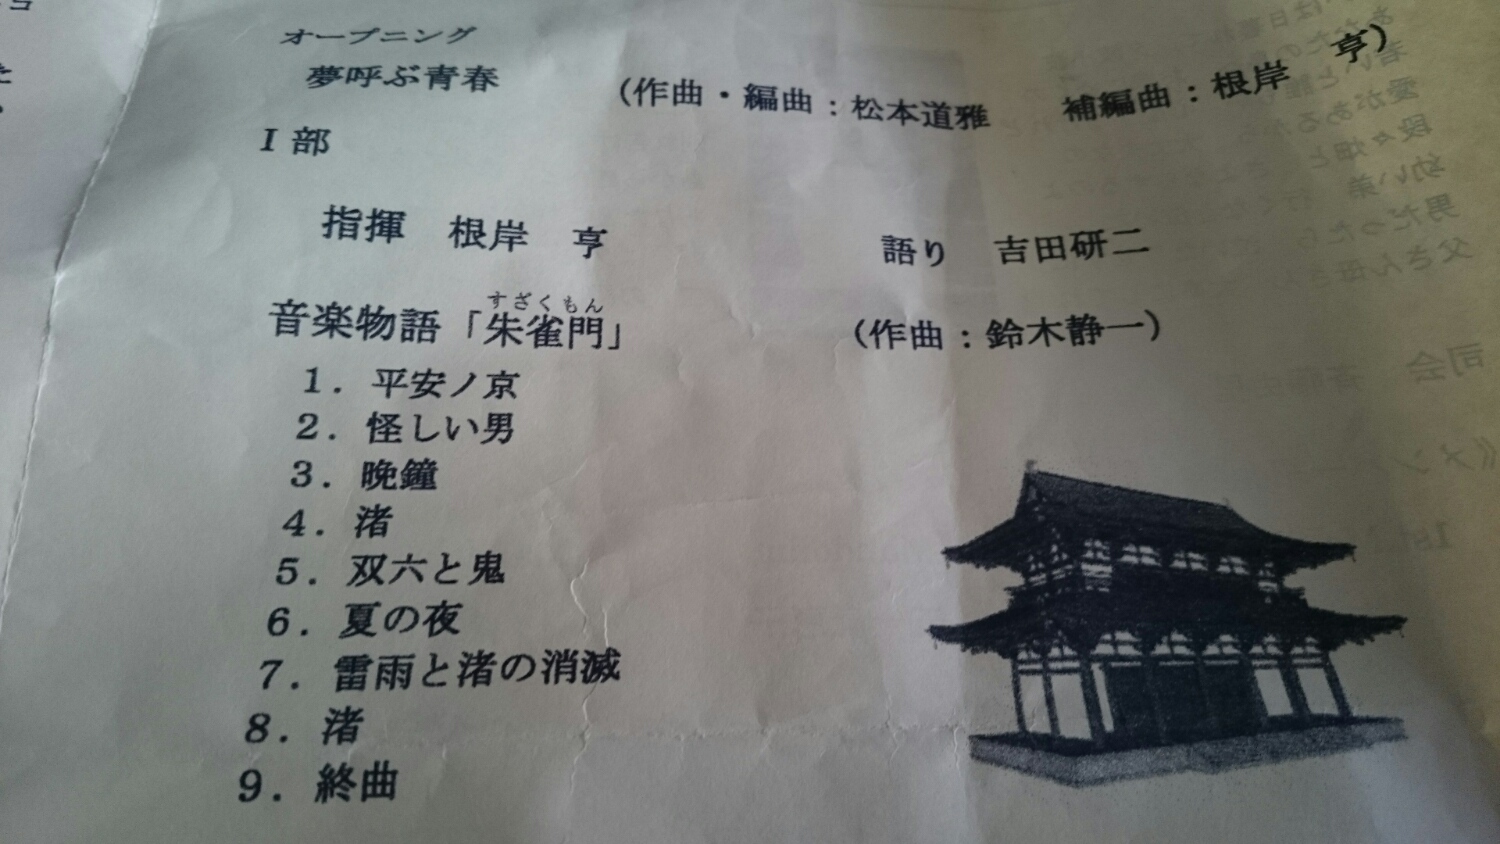 オープニング
夢呼ぶ青春 (作曲・編曲：松本道雅 補編曲：根岸 亨)
Ⅰ部
指揮 根岸 亨 語り 吉田研二
すざくもん
音楽物語「朱雀門」 (作曲：鈴木静一)
1．平安ノ京
2．怪しい男
3．晩鐘
4．渚
5．双六と鬼
6．夏の夜
7．雷雨と渚の消滅
8．渚
9．終曲